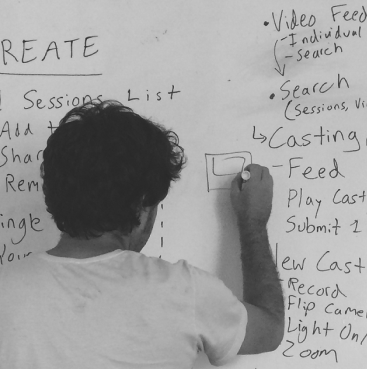 REATE
Sessions List
Add
Shar
Rem
ingle
Your
• Video Feed
- Individual
- search
• Search
(Sessions, Vi
↳ Casting
- Feed
Play Cast
Submit 1
ew Cast
- Record
Flip Came
Light On/
Zoom